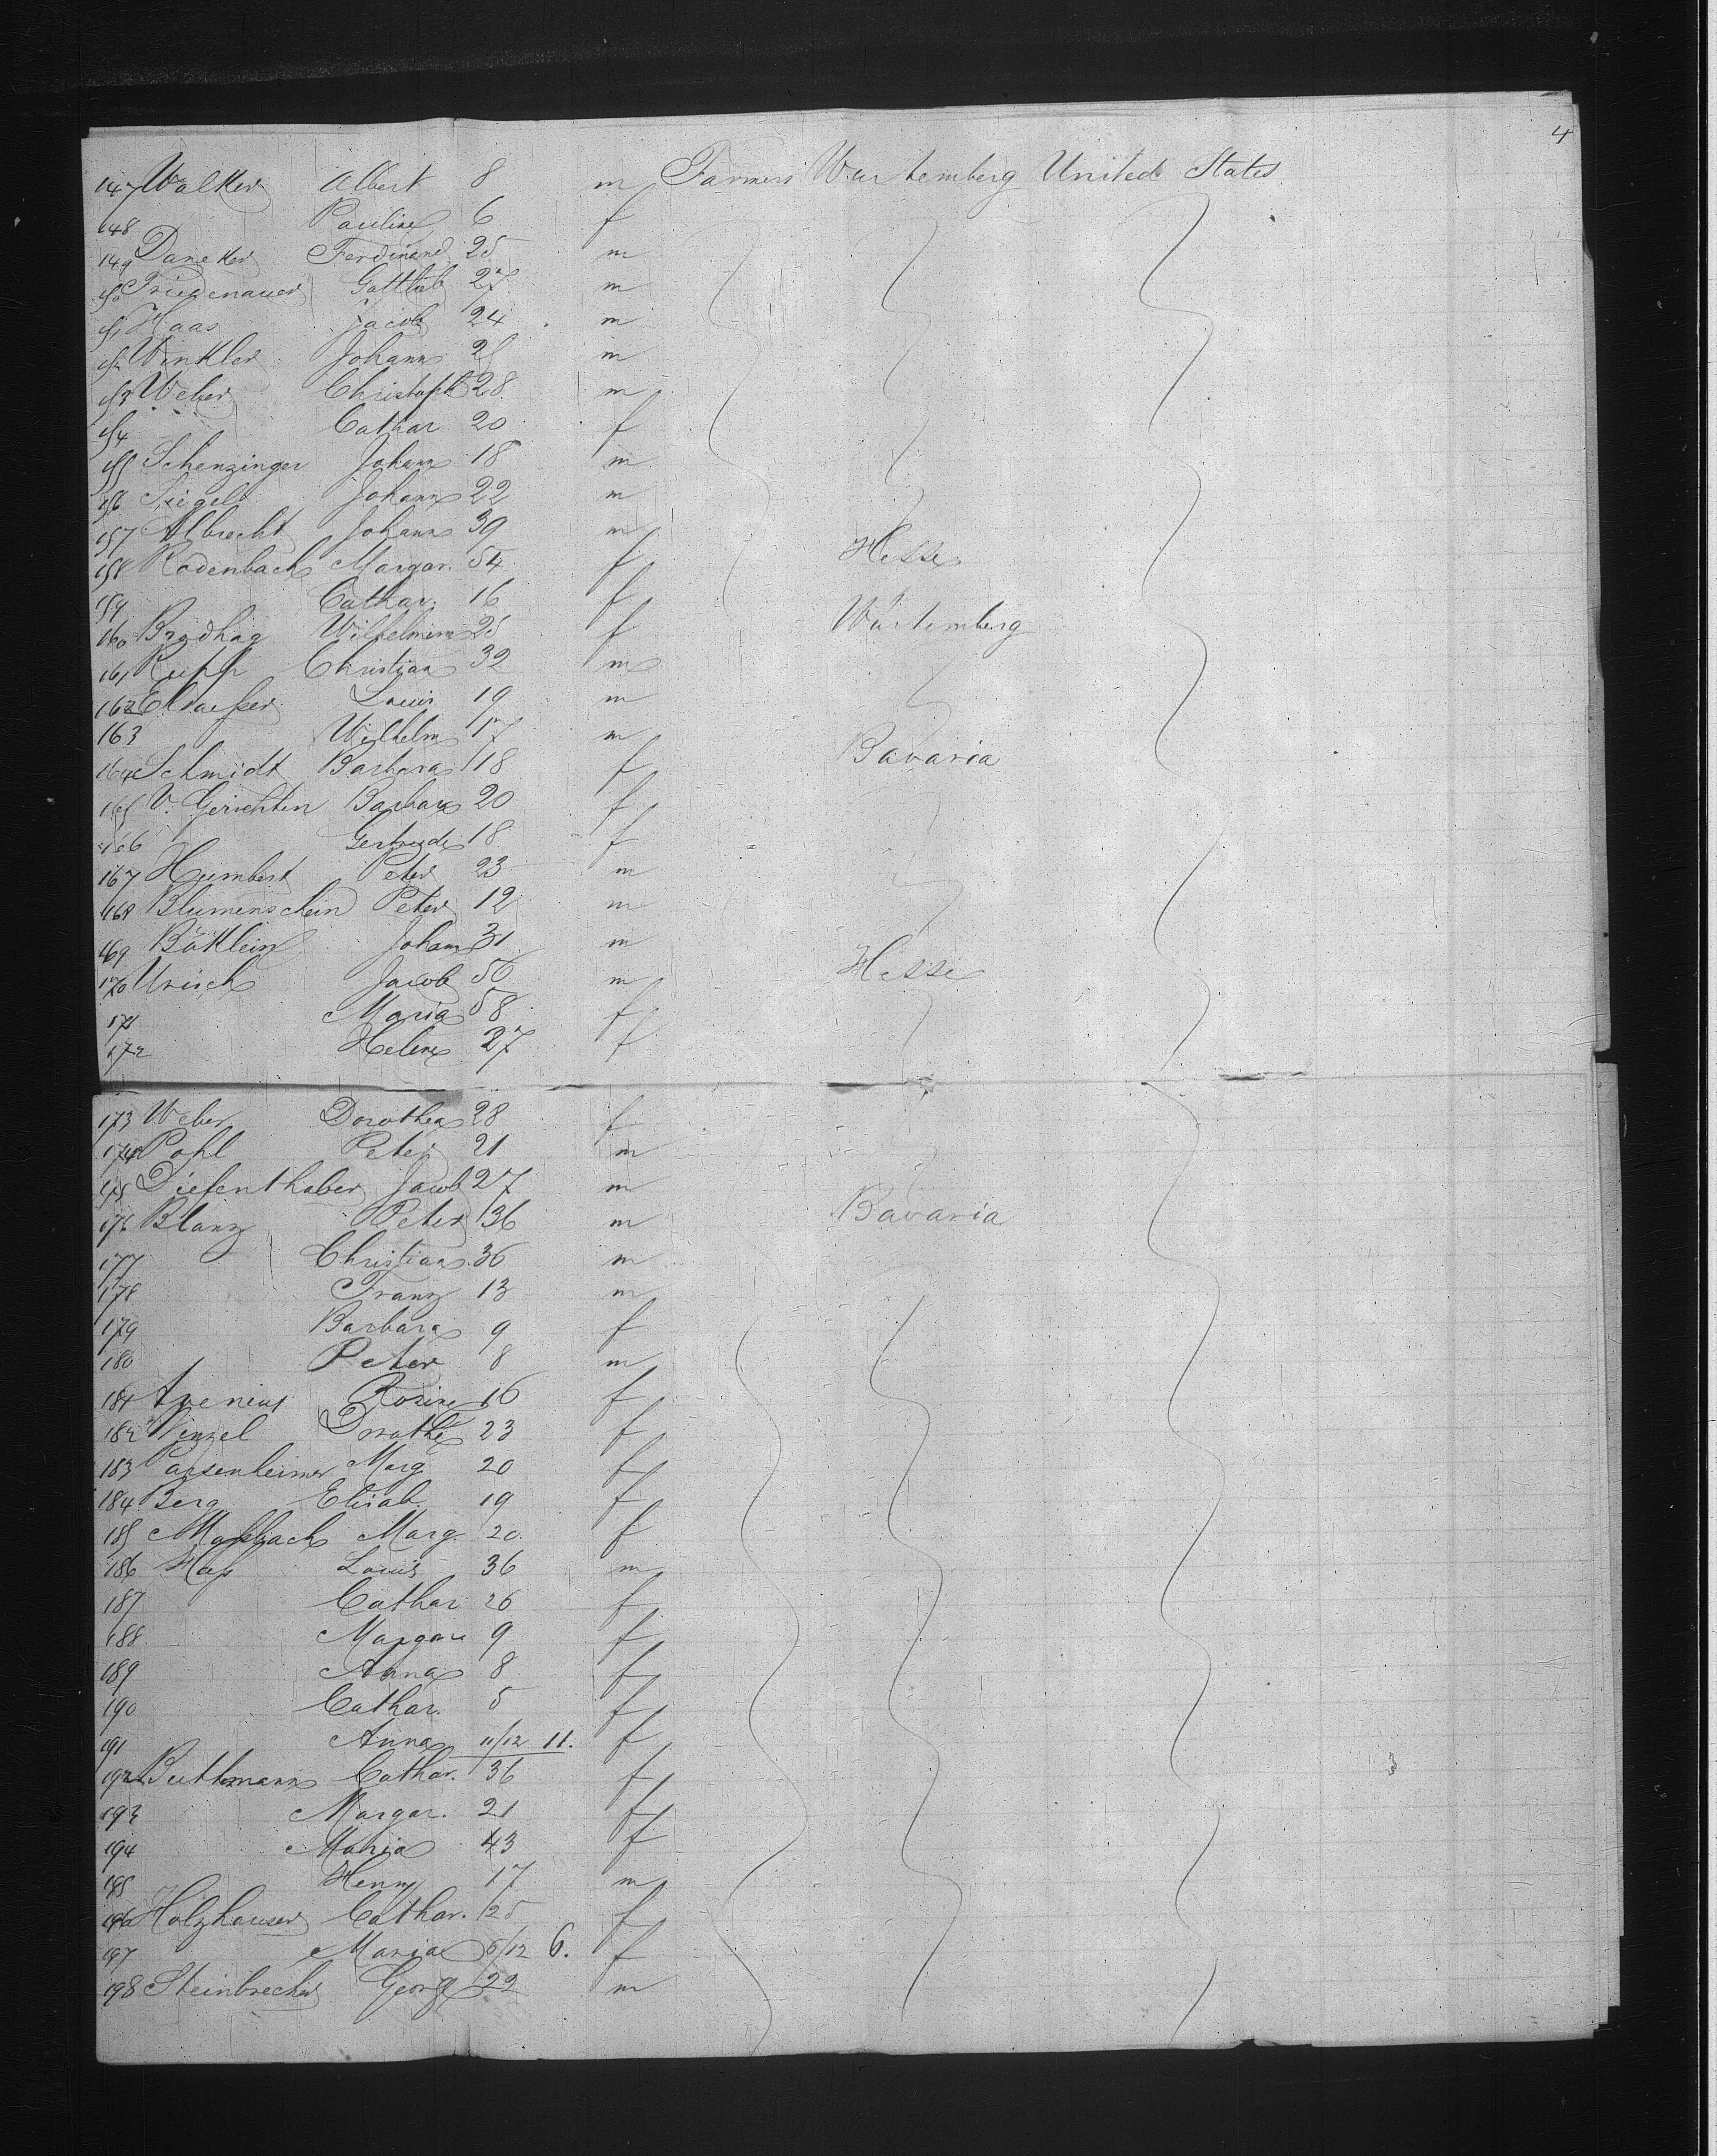 4
147 Walker Albert 8 m Farmers Wurtemberg United States
148 Pauline 6 f
149 Daneker Ferdinand 25 m
150 Friedenauer Gottlieb 27 m
151 Haas Jacob 24 m
152 Winkler Johann m
153 Weber Christoph 28 m
154 Cathar 20 f
155 Schenzinger Johann 18 m
156 Johann 22 m
157 Albrecht Johann 39 m
158 Rodenbach Margar. 54 f Hesse
159 Cathar. 16 f
160 Wilhelmine 25 f Würtemberg
161 Rupp Christian 32 m
162 Louis 19 m
163 Wilhelm 17 m
164 Schmidt Barbara 18 f Bavaria
165 V. Gerichten Barbara 20 f
166 Gertrude 18 f
167 Humbert Peter 23 m
168 Blumenschein Peter 12 m
169 Bäklein Johann 31 m
170 Urich Jacob 56 m Hesse
171 Maria 58 f
172 Helene 27 f
173 Weber Dorothea 28 f
174 Pohl Peter 21 m
175 Diefenthaber Jacob 27 m
176 Blanz Peter 36 m Bavaria
177 Christian 36 m
178 Franz 13 m
179 Barbara 9 f
180 Peter 8 m
181 Rosine 16 f
182 Dorothe 23 f
183 Marg 20 f
184 Berg Elisab. 19 f
185 Marg. 20. f
186 Louis 36 m
187 Cathar 26 f
188 Margare 9 f
189 Anna 8 f
190 Cathar. 5 f
191 Anna 11/12 11. f
192 Buttmann Cathar. 36 f
193 Margar. 21 f
194 Maria 43 f
195 Henry 17 m
196 Holzhauser Cathar. 25 f
197 Maria 6/12 6. f
198 Steinbrecher George 22 m